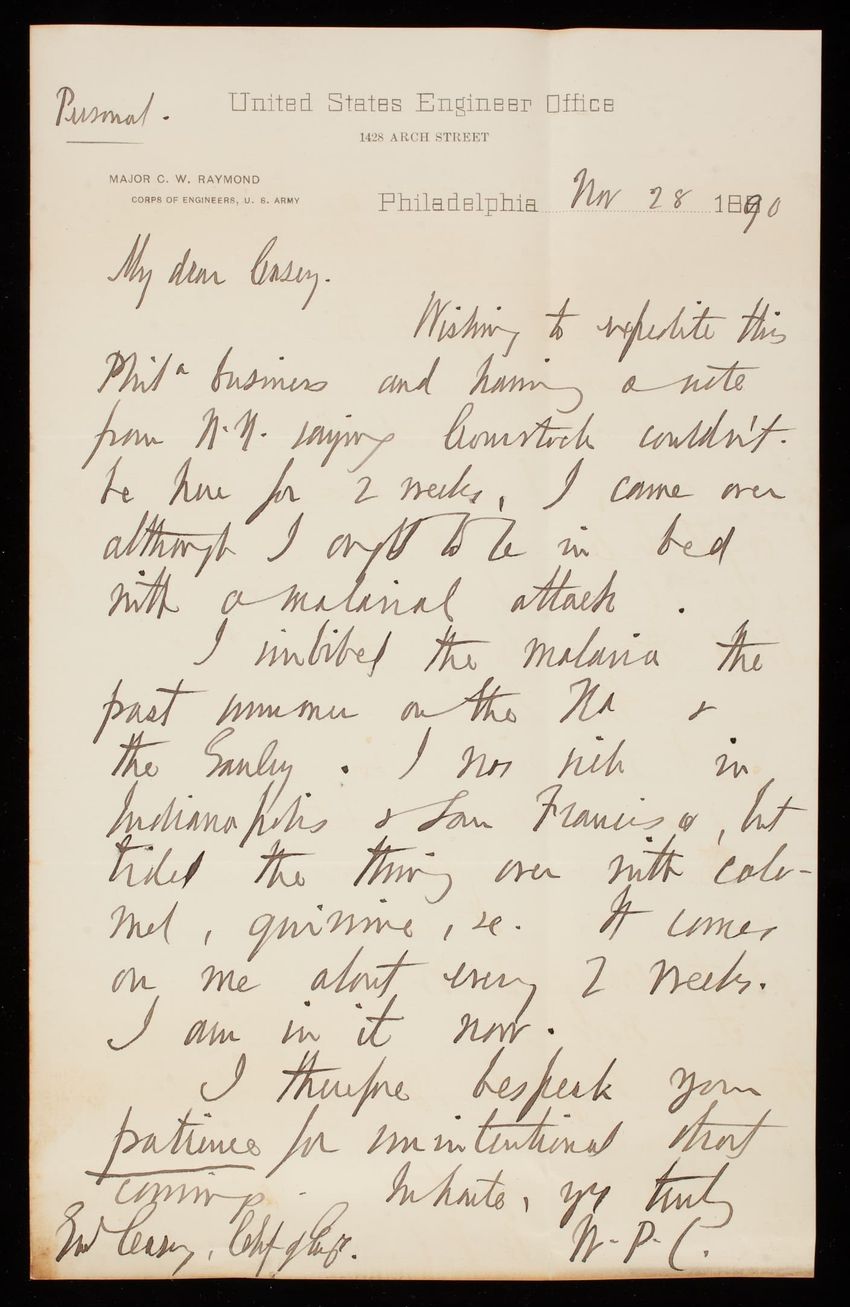 Personal.
United States Engineer Office
1428 ARCH STREET
MAJOR C. W. RAYMOND
CORPS OF ENGINEERS, U. S. ARMY
Philadelphia Nov 28 1890
My dear Casey.
Wishing to expedite this
Phila business and having a note
from N.Y. saying Comstock couldn't
be here for 2 weeks, I came over
although I ought to be in bed
with a malarial attack.
I imbibed the malaria the
past summer on the &
the Gauley. I was sick in
Indianapolis & San Francisco, but
tided the thing over with calo-
mel, quinine, &c. It comes
on me about every 2 weeks.
I am in it now.
I therefore bespeak your
patience for unintentional short
comings. In haste, yrs truly
Genl Casey, Chf of Engrs. W. P. C.